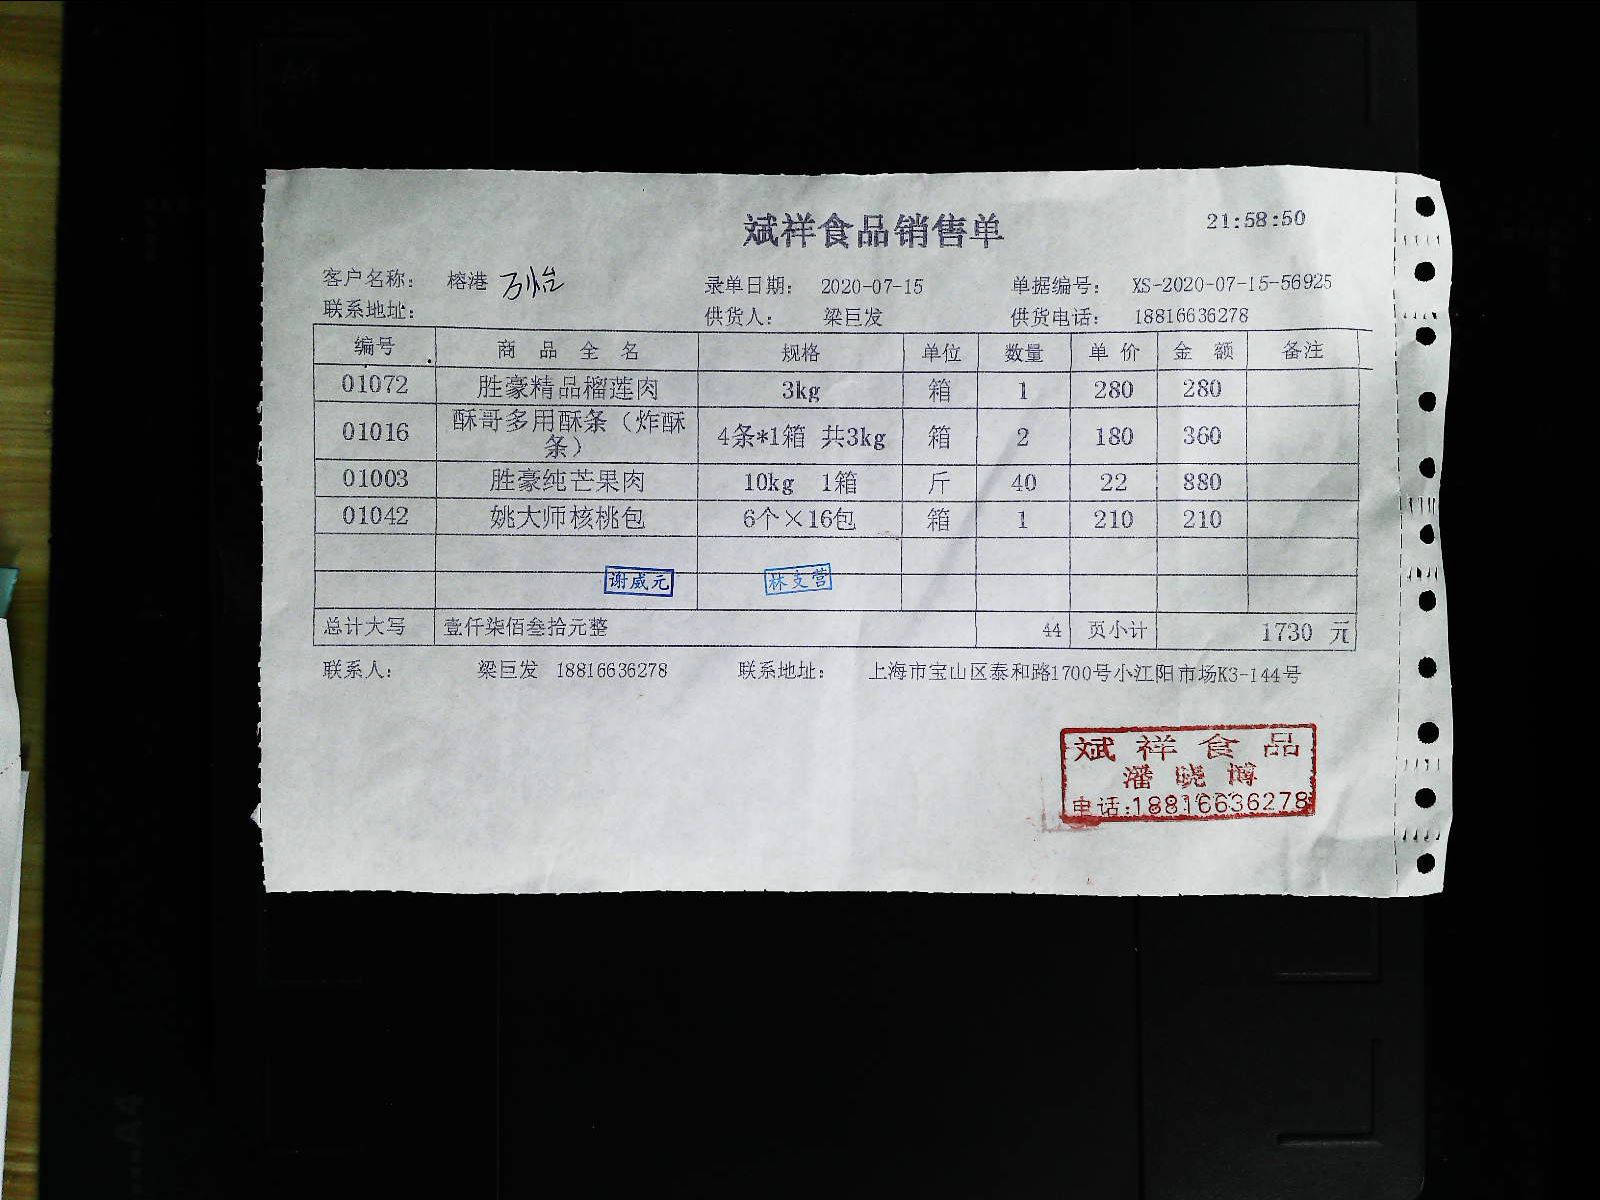 斌祥食品销售单
21:58:50
客户名称： 榕港 万怡 录单日期： 2020-07-15 单据编号： XS-2020-07-15-56925
联系地址： 供货人： 梁巨发 供货电话： 18816636278
编号 商品全名 规格 单位 数量 单价 金额 备注
01072 胜豪精品榴莲肉 3kg 箱 1 280 280
01016 酥哥多用酥条（炸酥条） 4条*1箱 共3kg 箱 2 180 360
01003 胜豪纯芒果肉 10kg 1箱 斤 40 22 880
01042 姚大师核桃包 6个×16包 箱 1 210 210
谢威元 林支营
总计大写 壹仟柒佰叁拾元整 44 页小计 1730 元
联系人： 梁巨发 18816636278 联系地址： 上海市宝山区泰和路1700号小江阳市场K3-144号
斌祥食品
潘晓博
电话:18816636278
A4